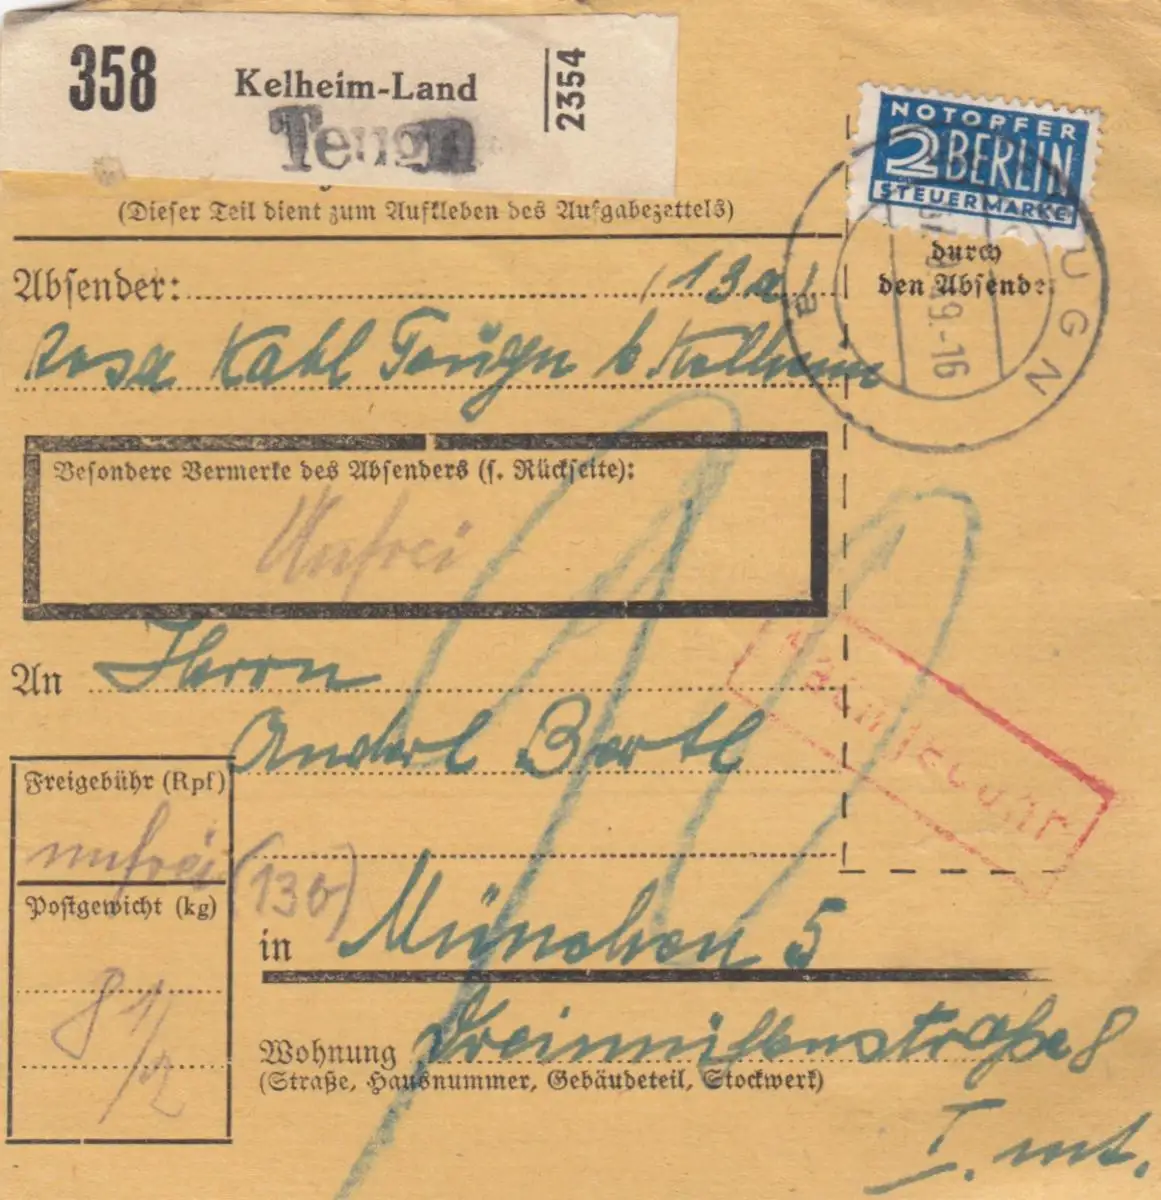 358
Kelheim-Land
Teugn
2354
NOTOPFER
2 BERLIN
STEUERMARKE
(Dieser Teil dient zum Aufkleben des Aufgabezettels)
durch
den Absender
UGN
a
49.-16
Absender: (13a)
Rosa Kahl Teugn b Kelheim
Besondere Vermerke des Absenders (s. Rückseite):
Unfrei
An Herrn
Anderl Bartl
Freigebühr (Rpf)
unfrei (13b)
Postgewicht (kg)
8 1/2
in München 5
Wohnung Dreimühlenstraße 8
(Straße, Hausnummer, Gebäudeteil, Stockwerk)
I. mt.
Nachgebühr